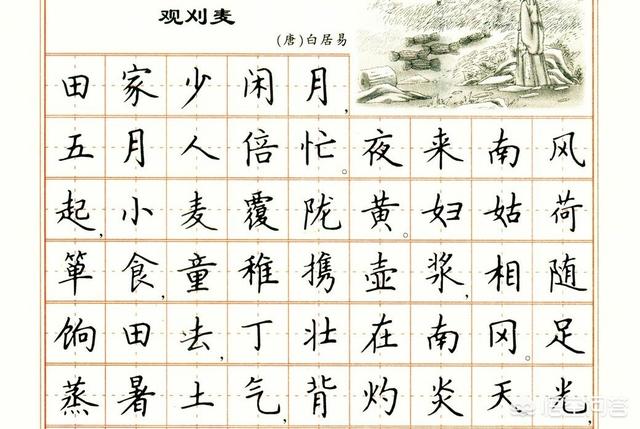 观刈麦
(唐)白居易
田家少闲月,
五月人倍忙。夜来南风
起,小麦覆陇黄。妇姑荷
箪食,童稚携壶浆,相随
饷田去,丁壮在南冈。足
蒸暑土气,背灼炎天光,
悟空问答